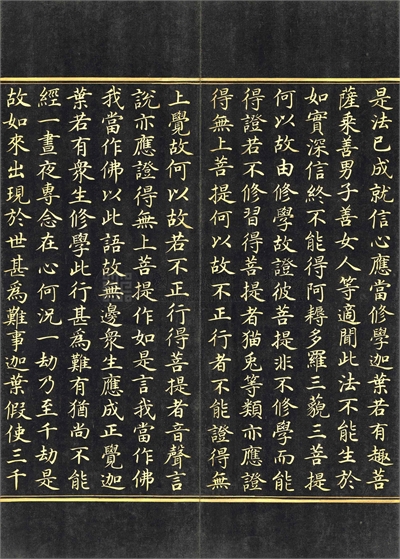 是法已成就信心應當修學迦葉若有趣菩
薩乘善男子善女人等適聞此法不能生於
如實深信終不能得阿耨多羅三藐三菩提
何以故由修學故證彼菩提非不修學而能
得證若不修習得菩提者猫兎等類亦應證
得無上菩提何以故不正行者不能證得無
上覺故何以故若不正行得菩提者音聲言
說亦應證得無上菩提作如是言我當作佛
我當作佛以此語故無邊衆生應成正覺迦
葉若有衆生修學此行甚爲難有猶尚不能
經一晝夜專念在心何況一劫乃至千劫是
故如來出現於世甚爲難事迦葉假使三千